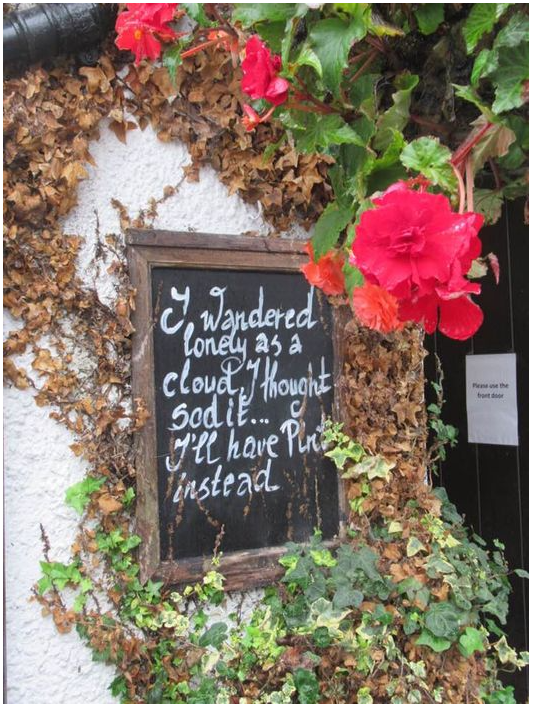 I wandered
lonely as a
cloud, I thought
sod it...
I'll have Pint
instead
Please use the
front door